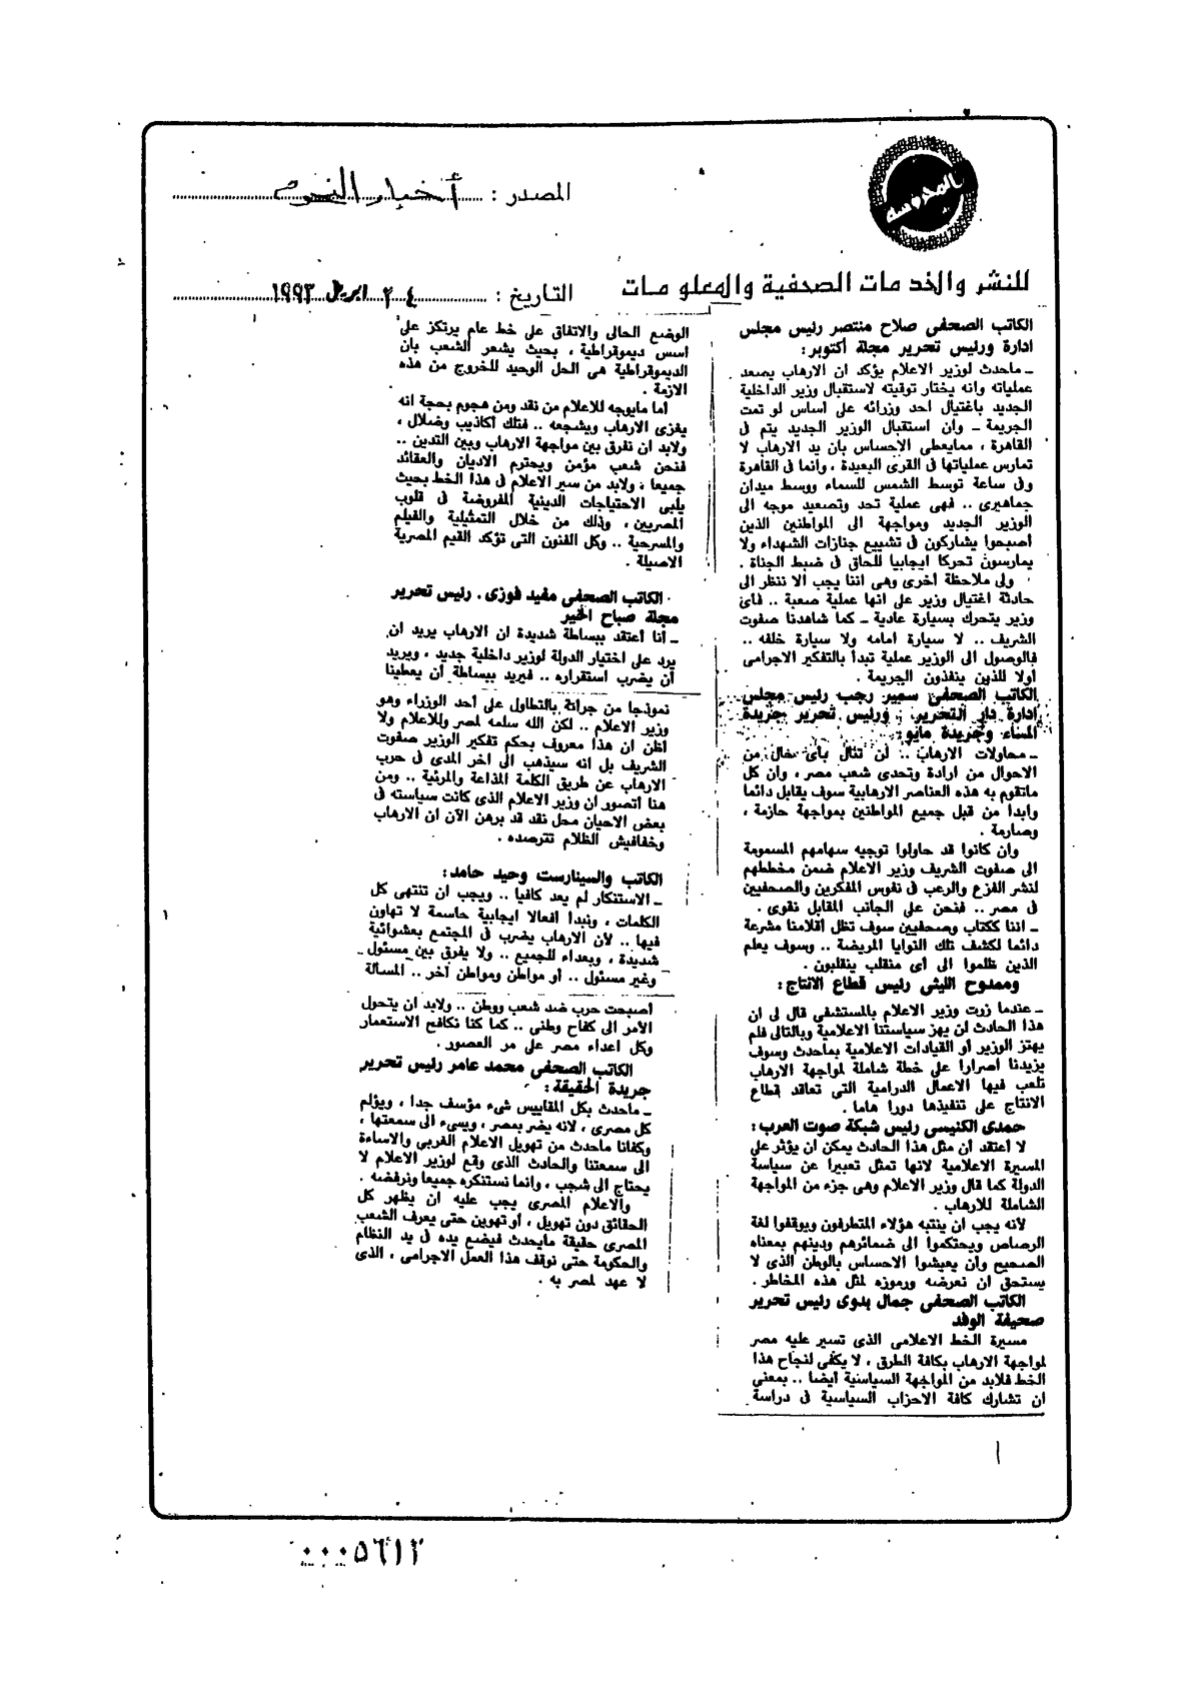 المحروسة
المصدر : أخبار النجوم
للنشر والخدمات الصحفية والمعلومات
التاريخ : ٢٤ ابريل ١٩٩٣
الكاتب الصحفى صلاح منتصر رئيس مجلس
ادارة ورئيس تحرير مجلة أكتوبر :
ـ ماحدث لوزير الاعلام يؤكد ان الارهاب يصعد
عملياته وانه يختار توقيته لاستقبال وزير الداخلية
الجديد باغتيال احد وزرائه على اساس لو تمت
الجريمة ـ وان استقبال الوزير الجديد يتم فى
القاهرة ، ممايعطى الإحساس بان يد الارهاب لا
تمارس عملياتها فى القرى البعيدة ، وانما فى القاهرة
وفى ساعة توسط الشمس للسماء ووسط ميدان
جماهيرى .. فهى عملية تحد وتصعيد موجه الى
الوزير الجديد ومواجهة الى المواطنين الذين
أصبحوا يشاركون فى تشييع جنازات الشهداء ولا
يمارسون تحركا ايجابيا للحاق فى ضبط الجناة .
ولى ملاحظة أخرى وهى اننا يجب الا ننظر الى
حادثة اغتيال وزير على انها عملية صعبة .. فاى
وزير يتحرك بسيارة عادية ـ كما شاهدنا صفوت
الشريف .. لا سيارة امامه ولا سيارة خلفه ..
فالوصول الى الوزير عملية تبدأ بالتفكير الاجرامى
أولا للذين ينفذون الجريمة .
الكاتب الصحفى سمير رجب رئيس مجلس
إدارة دار التحرير . ورئيس تحرير جريدة
المساء وجريدة مايو :
ـ محاولات الارهاب .. لن تنال باى حال من
الاحوال من ارادة وتحدى شعب مصر ، وان كل
ماتقوم به هذه العناصر الارهابية سوف يقابل دائما
وابدا من قبل جميع المواطنين بمواجهة حازمة ،
وصارمة .
وان كانوا قد حاولوا توجيه سهامهم المسمومة
الى صفوت الشريف وزير الاعلام ضمن مخططهم
لنشر الفزع والرعب فى نفوس المفكرين والصحفيين
فى مصر .. فنحن على الجانب المقابل نقوى .
ـ اننا ككتاب وصحفيين سوف تظل أقلامنا مشرعة
دائما لكشف تلك النوايا المريضة .. وسوف يعلم
الذين ظلموا الى أى منقلب ينقلبون .
وممدوح الليثى رئيس قطاع الانتاج :
ـ عندما زرت وزير الاعلام بالمستشفى قال لى ان
هذا الحادث لن يهز سياستنا الاعلامية وبالتالى فلم
يهتز الوزير أو القيادات الاعلامية بماحدث وسوف
يزيدنا اصرارا على خطة شاملة لمواجهة الارهاب
تلعب فيها الاعمال الدرامية التى تعاقد قطاع
الانتاج على تنفيذها دورا هاما .
حمدى الكنيسى رئيس شبكة صوت العرب :
لا أعتقد أن مثل هذا الحادث يمكن ان يؤثر على
المسيرة الاعلامية لانها تمثل تعبيرا عن سياسة
الدولة كما قال وزير الاعلام وهى جزء من المواجهة
الشاملة للارهاب .
لأنه يجب ان ينتبه هؤلاء المتطرفون ويوقفوا لغة
الرصاص ويحتكموا الى ضمائرهم ودينهم بمعناه
الصحيح وأن يعيشوا الاحساس بالوطن الذى لا
يستحق ان نعرضه ورموزه لمثل هذه المخاطر .
الكاتب الصحفى جمال بدوى رئيس تحرير
صحيفة الوفد
مسيرة الخط الاعلامى الذى تسير عليه مصر
لمواجهة الارهاب بكافة الطرق ، لا يكفى لنجاح هذا
الخط فلابد من المواجهة السياسية أيضا .. بمعنى
ان تشارك كافة الاحزاب السياسية فى دراسة
الوضع الحالى والاتفاق على خط عام يرتكز على
اسس ديموقراطية ، بحيث يشعر الشعب بان
الديموقراطية هى الحل الوحيد للخروج من هذه
الازمة .
أما مايوجه للاعلام من نقد ومن هجوم بحجة انه
يغزى الارهاب ويشجعه .. فتلك أكاذيب وضلال ،
ولابد ان نفرق بين مواجهة الارهاب وبين التدين ..
فنحن شعب مؤمن ويحترم الاديان والعقائد
جميعا ، ولابد من سير الاعلام فى هذا الخط بحيث
يلبى الاحتياجات الدينية المفروضة فى قلوب
المصريين ، وذلك من خلال التمثيلية والفيلم
والمسرحية .. وكل الفنون التى تؤكد القيم المصرية
الاصيلة .
الكاتب الصحفى مفيد فوزى . رئيس تحرير
مجلة صباح الخير
ـ أنا أعتقد ببساطة شديدة ان الارهاب يريد ان
يرد على اختيار الدولة لوزير داخلية جديد ، ويريد
أن يضرب استقراره .. فيريد ببساطة أن يعطينا
نموذجا من جرائه بالتطاول على أحد الوزراء وهو
وزير الاعلام .. لكن الله سلمه لمصر وللاعلام ولا
اظن ان هذا معروف بحكم تفكير الوزير صفوت
الشريف بل انه سيذهب الى اخر المدى فى حرب
الارهاب عن طريق الكلمة المذاعة والمرئية .. ومن
هنا أتصور ان وزير الاعلام الذى كانت سياسته فى
بعض الاحيان محل نقد قد برهن الآن ان الارهاب
وخفافيش الظلام تترصده .
الكاتب والسينارست وحيد حامد :
ـ الاستنكار لم يعد كافيا .. ويجب ان تنتهى كل
الكلمات ، ونبدا افعالا ايجابية حاسمة لا تهاون
فيها .. لأن الارهاب يضرب فى المجتمع بعشوائية
شديدة ، وبعداء للجميع .. ولا يفرق بين مسئول
وغير مسئول .. أو مواطن ومواطن آخر .. المسالة
أصبحت حرب ضد شعب ووطن .. ولابد ان يتحول
الأمر الى كفاح وطنى .. كما كنا نكافح الاستعمار
وكل اعداء مصر على مر العصور .
الكاتب الصحفى محمد عامر رئيس تحرير
جريدة الحقيقة :
ـ ماحدث بكل المقاييس شىء مؤسف جدا ، ويؤلم
كل مصرى ، لانه يضر بمصر ، ويسىء الى سمعتها ،
وكفانا ماحدث من تهويل الاعلام الغربى والاساءة
الى سمعتنا والحادث الذى وقع لوزير الاعلام لا
يحتاج الى شجب ، وانما نستنكره جميعا ونرفضه .
والاعلام المصرى يجب عليه ان يظهر كل
الحقائق دون تهويل ، أو تهوين حتى يعرف الشعب
المصرى حقيقة مايحدث فيضع يده فى يد النظام
والحكومة حتى نوقف هذا العمل الاجرامى ، الذى
لا عهد لمصر به .
١
٠٠٠٥٦١٢